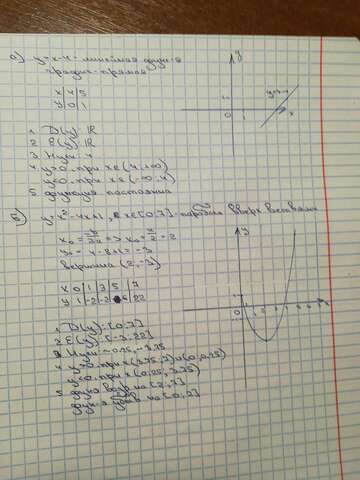 а) y = x-4 - линейная функ-я
график - прямая
x | 4 | 5
y | 0 | 1
y
y=x-4
0 1 x
1. D(y): R
2. E(y): R
3. Нули: 4
4. y>0, при x∈(4;+∞)
y<0, при x∈(-∞;4)
5. функция
б) y = x²-4x+1, x∈[0;7] - парабола вверх ветвями
x₀ = -b/2a => x₀ = 4/2 = 2
y₀ = 4-8+1 = -3
вершина (2;-3)
x | 0 | 1 | 3 | 5 | 7
y | 1 | -2 | -2 | 6 | 22
y
0 x
1. D(y): [0;7]
2. E(y): [-3;22]
3. Нули: ~0,25; ~3,75
4. y>0, при x (3,75;7) ∪ (0;0,25)
y<0, при x (0,25; 3,75)
5. функ возр на [2;7]
функ-я убыв на [0;2]